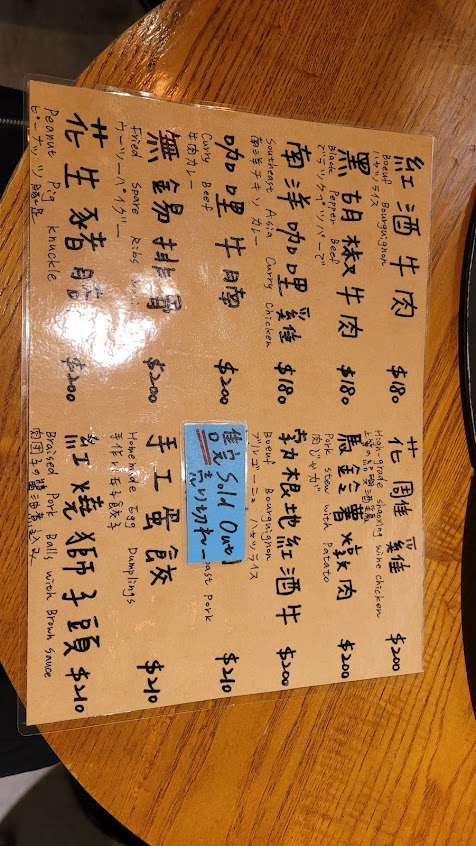 紅酒牛肉 $180
Boeuf Bourguignon
ハヤシライス
黑胡椒牛肉 $180
Black Pepper Beef
南洋咖哩雞 $180
Southeast Asia Curry Chicken
南洋チキンカレー
咖哩牛腩 $200
Curry Beef
牛肉カレー
無錫排骨 $200
Fried Spare Ribs
花生豬腳 $200
Peanut Pig Knuckle
ピーナッツ豚足
花雕雞 $200
High-grade shaoxing wine chicken
馬鈴薯燉肉 $200
Pork stew with Patato
肉じゃが
勃根地紅酒牛 $200
Boeuf Bourguignon
ブルゴーニュ ハヤシライス
售完 Sold Out
売り切れ
oast Pork
$210
手工蛋餃 $210
Homemade Egg Dumplings
紅燒獅子頭 $210
Braised Pork Balls with Brown Sauce